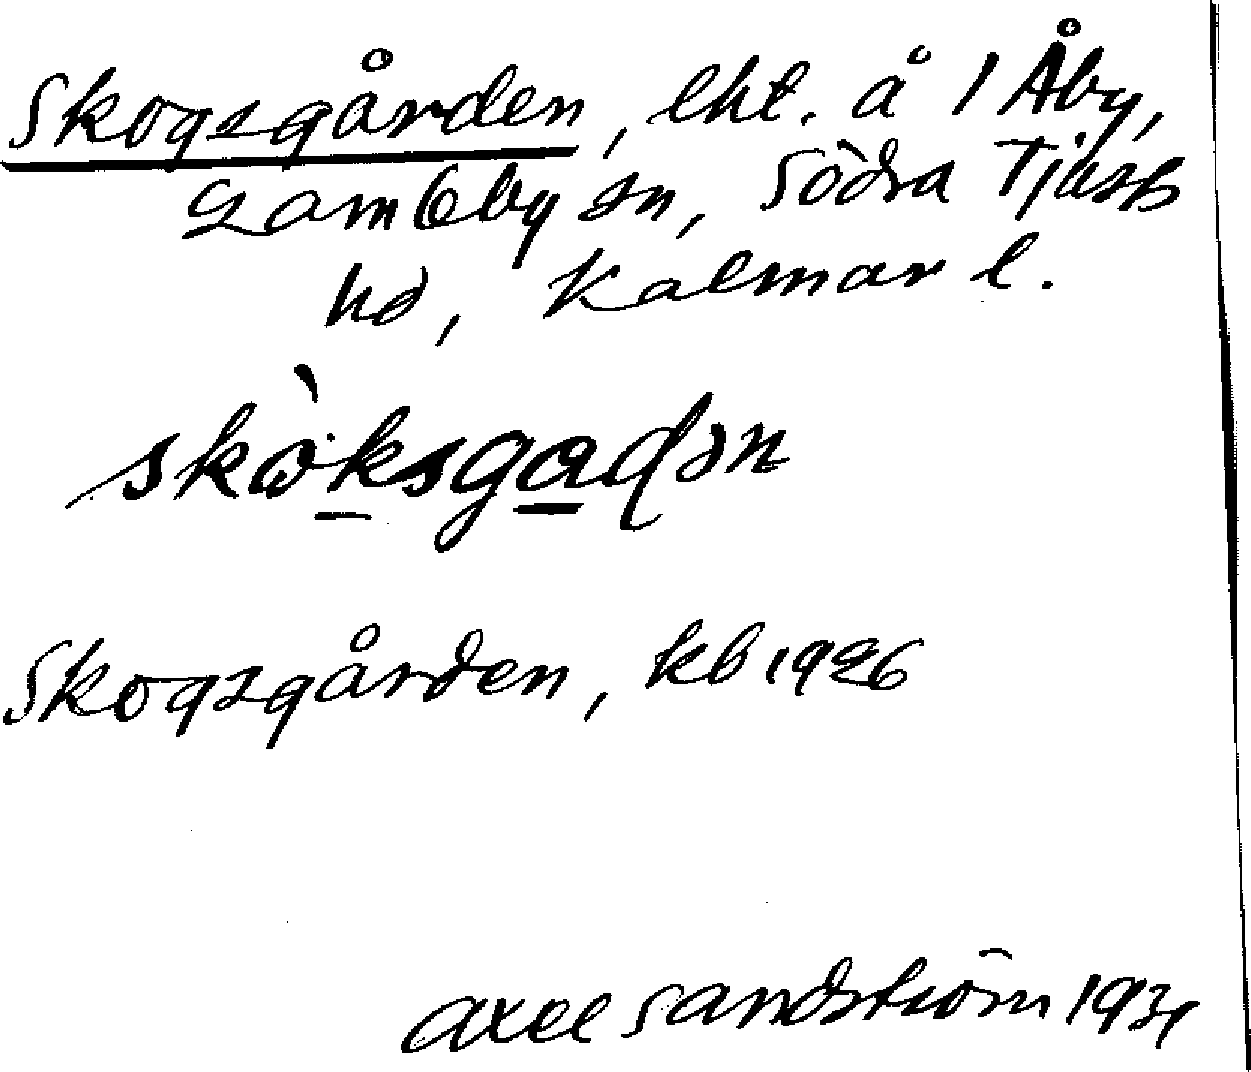 Skogsgården, lht. å 1 Åby,
Gamleby sn, Södra Tjusts
hd, Kalmar l.
skò̤ksgadən
Skogsgården, kb 1926
Axel Sandström 1931